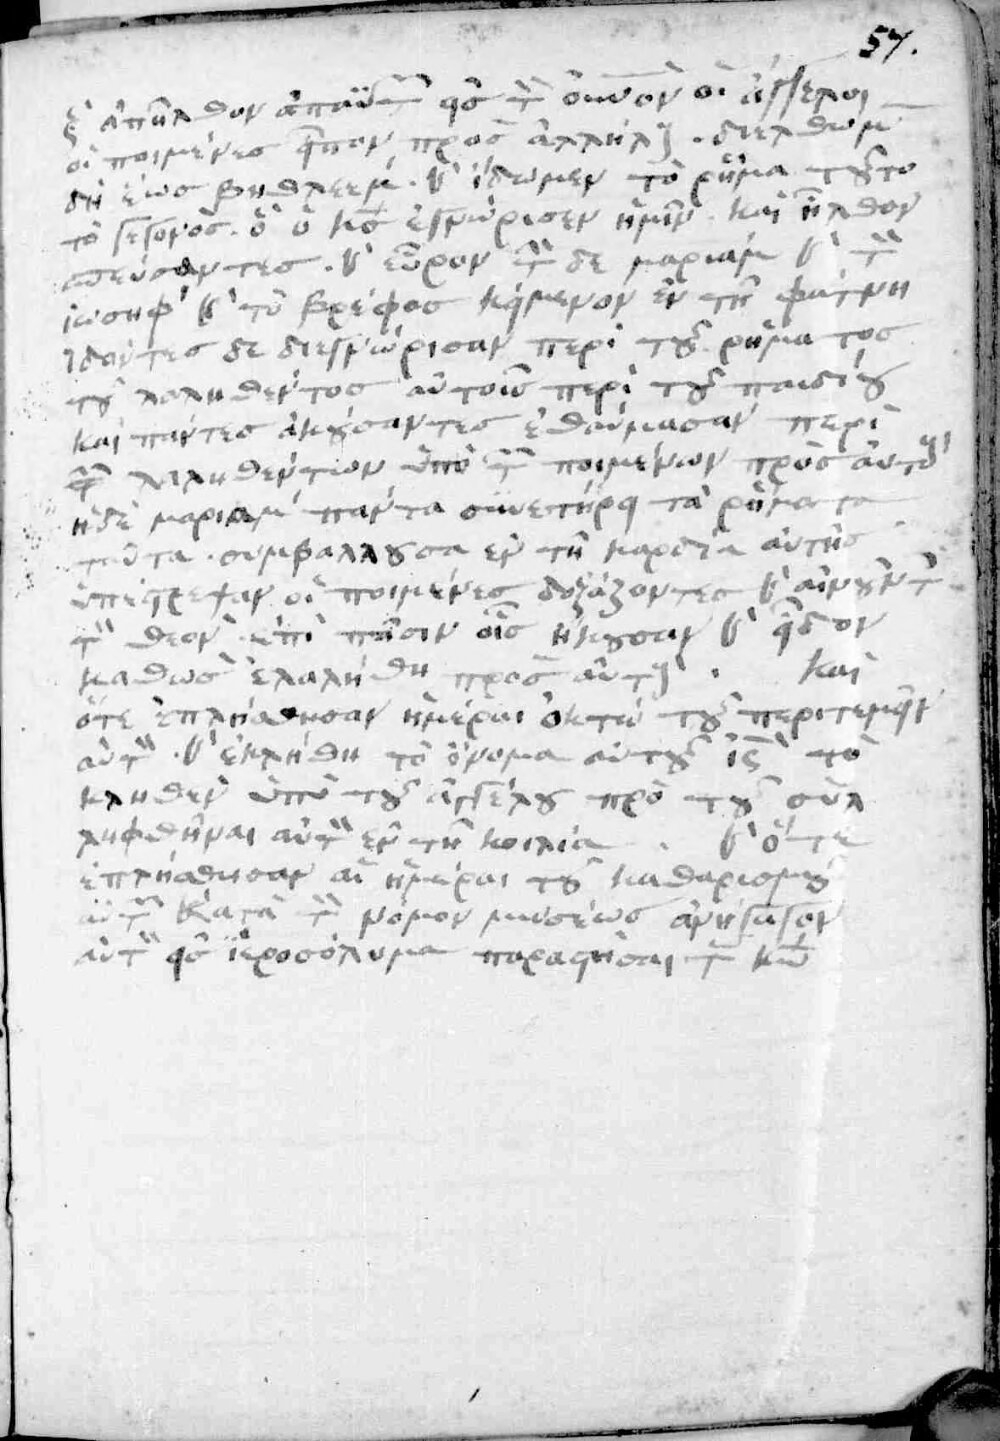 57.
ἀπῆλθον ἀπ αὐτ εἰς τ οὐνον οἱ ἄγγελοι
οἱ ποιμένες εἶπον πρὸς ἀλλήλ . διελθωμ
δὴ ἕως βηθλεέμ . κ ἴδωμεν τὸ ρῆμα τοῦτο
τὸ γεγονὸς . ὃ ὁ κς ἐγνώρισεν ἡμῖν . καὶ ἦλθον
σπεύσαντες . κ εὗρον τ δε μαριὰμ κ τ
ἰωσὴφ κ τὸ βρέφος κείμενον ἐν τῆ φάτνη
ἰδόντες δε διεγνώρισαν περὶ τοῦ ρήματος
τοῦ λαληθέντος αὐτοῖς περὶ τοῦ παιδίου
καὶ πάντες ἀκούσαντες ἐθαύμασαν περὶ
τ λαληθέντων ὑπὸ τ ποιμένων πρὸς αὐτοὺ
ἡ δὲ μαριὰμ πάντα συνετήρει τὰ ρήματα
ταῦτα . συμβάλλουσα ἐν τῆ καρδία αὐτῆς
ὑπέστρεψαν οἱ ποιμένες δοξάζοντες κ αἰνοῦντ
τ θεὸν ἐπὶ πᾶσιν οἷς ἤκουσαν κ εἶδον
καθὼς ἐλαλήθη πρὸς αὐτ . Καὶ
ὅτε ἐπλήσθησαν ἡμέραι ὀκτὼ τοῦ περιτεμεῖν
αὐτ . κ ἐκλήθη τὸ ὄνομα αὐτοῦ ις τὸ
κληθὲν ὑπὸ τοῦ ἀγγέλου πρὸ τοῦ συλ
ληφθῆναι αὐτ ἐν τῆ κοιλία . κ ὅτε
ἐπλήσθησαν αἱ ἡμέραι τοῦ καθαρισμοῦ
αὐτ κατὰ τ νόμον μωσέως ἀνήγαγον
αὐτ εἰς ἱεροσόλυμα παραστῆσαι τ κω